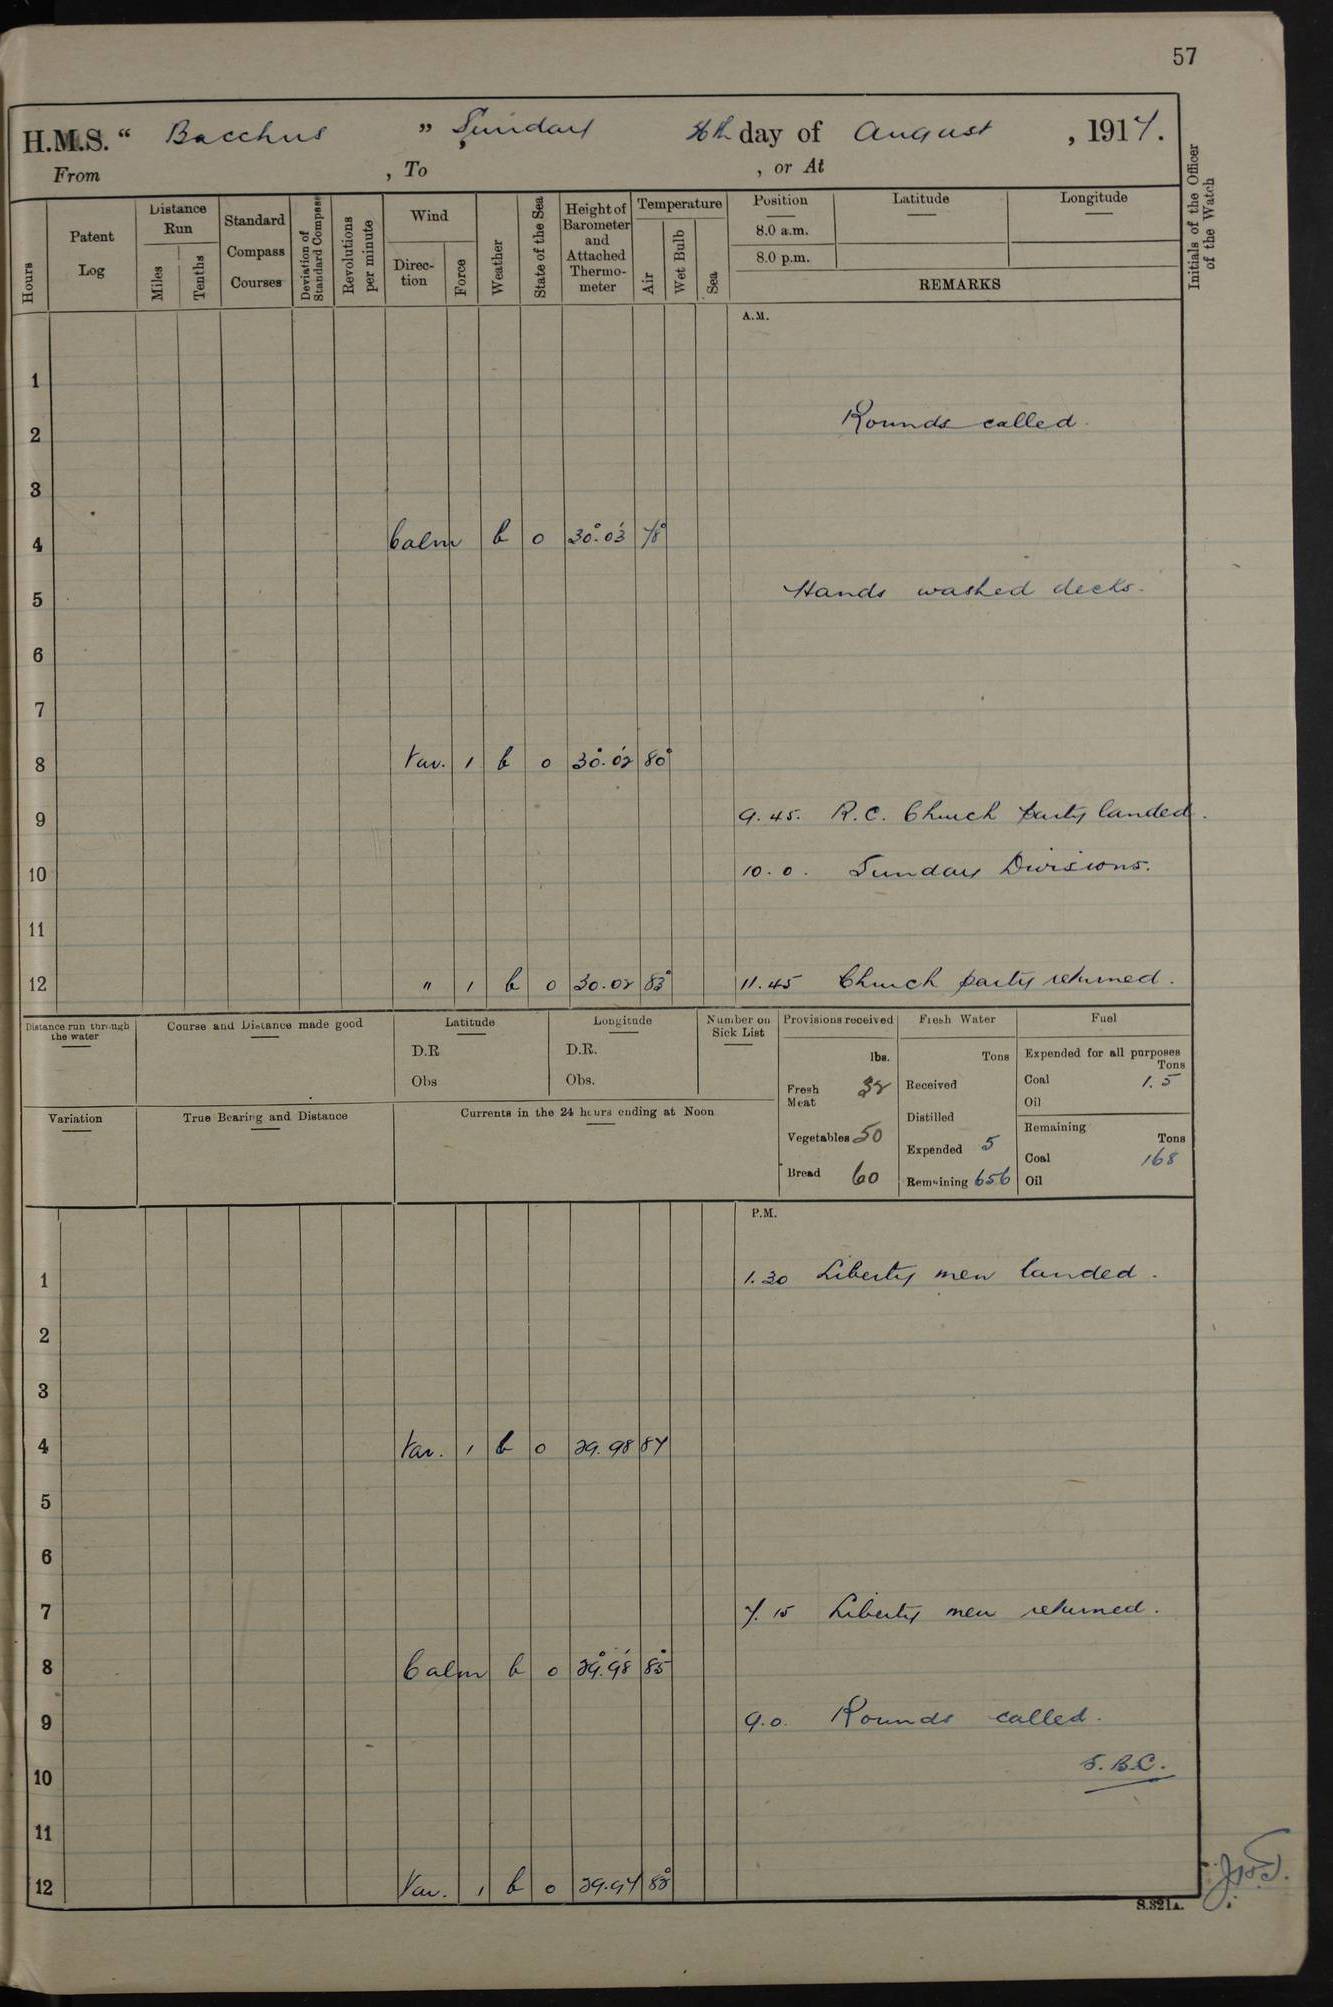 57
H.M.S. “ Bacchus ” , Sunday 26th day of August , 1917.
From , To , or At
Hours
Patent Log
Distance Run
Miles
Tenths
Standard Compass Courses
Deviation of Standard Compass
Revolutions per minute
Wind
Direction
Force
Weather
State of the Sea
Height of Barometer and Attached Thermometer
Temperature
Air
Wet Bulb
Sea
Position
8.0 a.m.
8.0 p.m.
Latitude
Longitude
REMARKS
Initials of the Officer of the Watch
A.M.
1
2 Rounds called.
3
4 Calm b 0 30°.03' 78°
5 Hands washed decks.
6
7
8 Var. 1 b 0 30°.02' 80°
9 9.45. R.C. Church party landed.
10 10.0. Sunday Divisions.
11
12 " 1 b 0 30.02 83° 11.45 Church party returned.
Distance run through the water
Course and Distance made good
Latitude
D.R
Obs
Longitude
D.R.
Obs.
Number on Sick List
Provisions received
lbs.
Fresh Meat 32
Vegetables 50
Bread 60
Fresh Water
Tons
Received
Distilled
Expended 5
Remaining 656
Fuel
Expended for all purposes
Tons
Coal 1.5
Oil
Remaining
Tons
Coal 168
Oil
Variation
True Bearing and Distance
Currents in the 24 hours ending at Noon
P.M.
1 1.30 Liberty men landed.
2
3
4 Var. 1 b 0 29.98 87
5
6
7 7.15 Liberty men returned.
8 Calm b 0 29°.98' 85°
9 9.0. Rounds called.
S.B.C.
10
11
12 Var. 1 b 0 29.97 82°
S.321A.